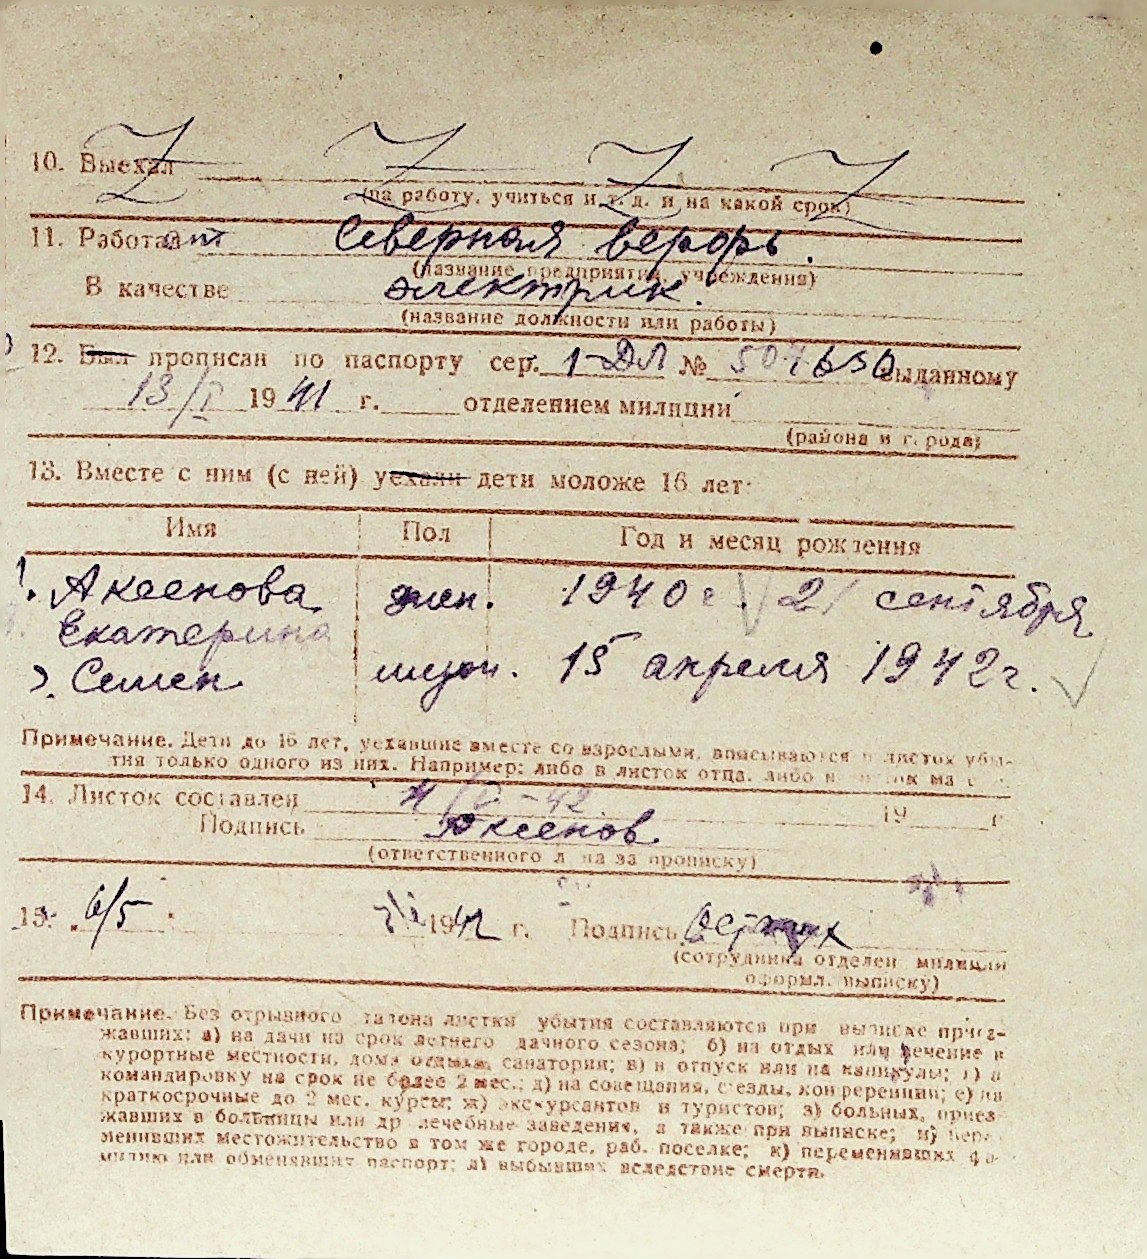 10. Выехал
(на работу, учиться и т. д. и на какой срок)
11. Работает Северная верфь.
(название предприятия, учреждения)
В качестве электрик.
(название должности или работы)
12. Был прописан по паспорту сер. 1-ДЛ № 507630 выданному
13/I 1941 г. отделением милиции
(района и города)
13. Вместе с ним (с ней) уехали дети моложе 16 лет:
Имя Пол Год и месяц рождения
1. Аксенова жен. 1940 г. 2/ сентября
Екатерина
2. Семен муж. 15 апреля 1942 г.
Примечание. Дети до 16 лет, уехавшие вместе со взрослыми, вписываются в листок убы-
тия только одного из них. Например: либо в листок отца, либо в листок
14. Листок составлен 4/V-42 19 г
Подпись Аксенов
(ответственного лица за прописку)
15. 6/5 1942 г. Подпись
(сотрудника отделен милиции
оформл. выписку)
Примечание. Без отрывного талона листки убытия составляются при выписке приез-
жавших: а) на дачи на срок летнего дачного сезона; б) на отдых или лечение в
курортные местности, дома отдыха, санатории; в) в отпуск или на каникулы; г) в
командировку на срок не более 2 мес.; д) на совещания, съезды, конференции; е) на
краткосрочные до 2 мес. курсы; ж) экскурсантов и туристов; з) больных, приез-
жавших в больницы или др лечебные заведения, а также при выписке; и) пере-
менивших местожительство в том же городе, раб. поселке; к) переменивших фа-
милию или обменявших паспорт; л) выбывших вследствие смерти.